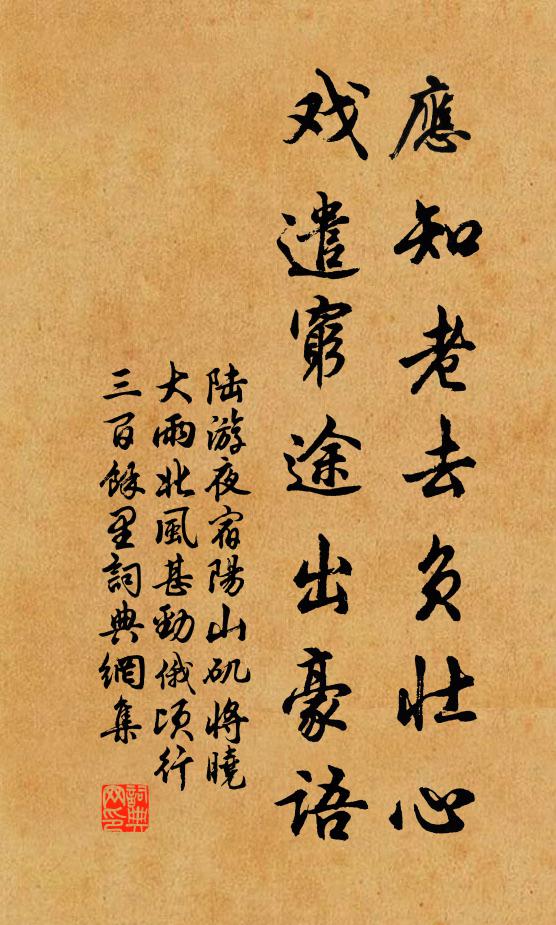 應知老去負壯心
戏遣窮途出豪語
陆游夜宿陽山矶將曉
大雨北風甚勁俄頃行
三百餘里詞典網集
詞典網印